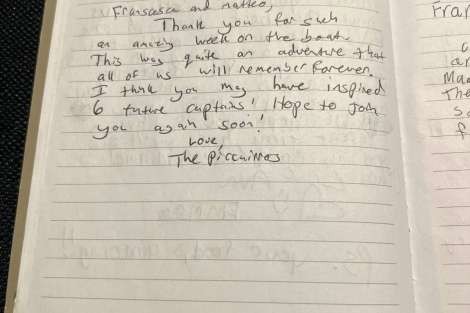 Franscesca and matteo,
Thank you for such
an amazing week on the boat.
This was quite an adventure that
all of us will remember forever.
I think you may have inspired
6 future captains! Hope to join
you again soon!
Love,
The
Fran